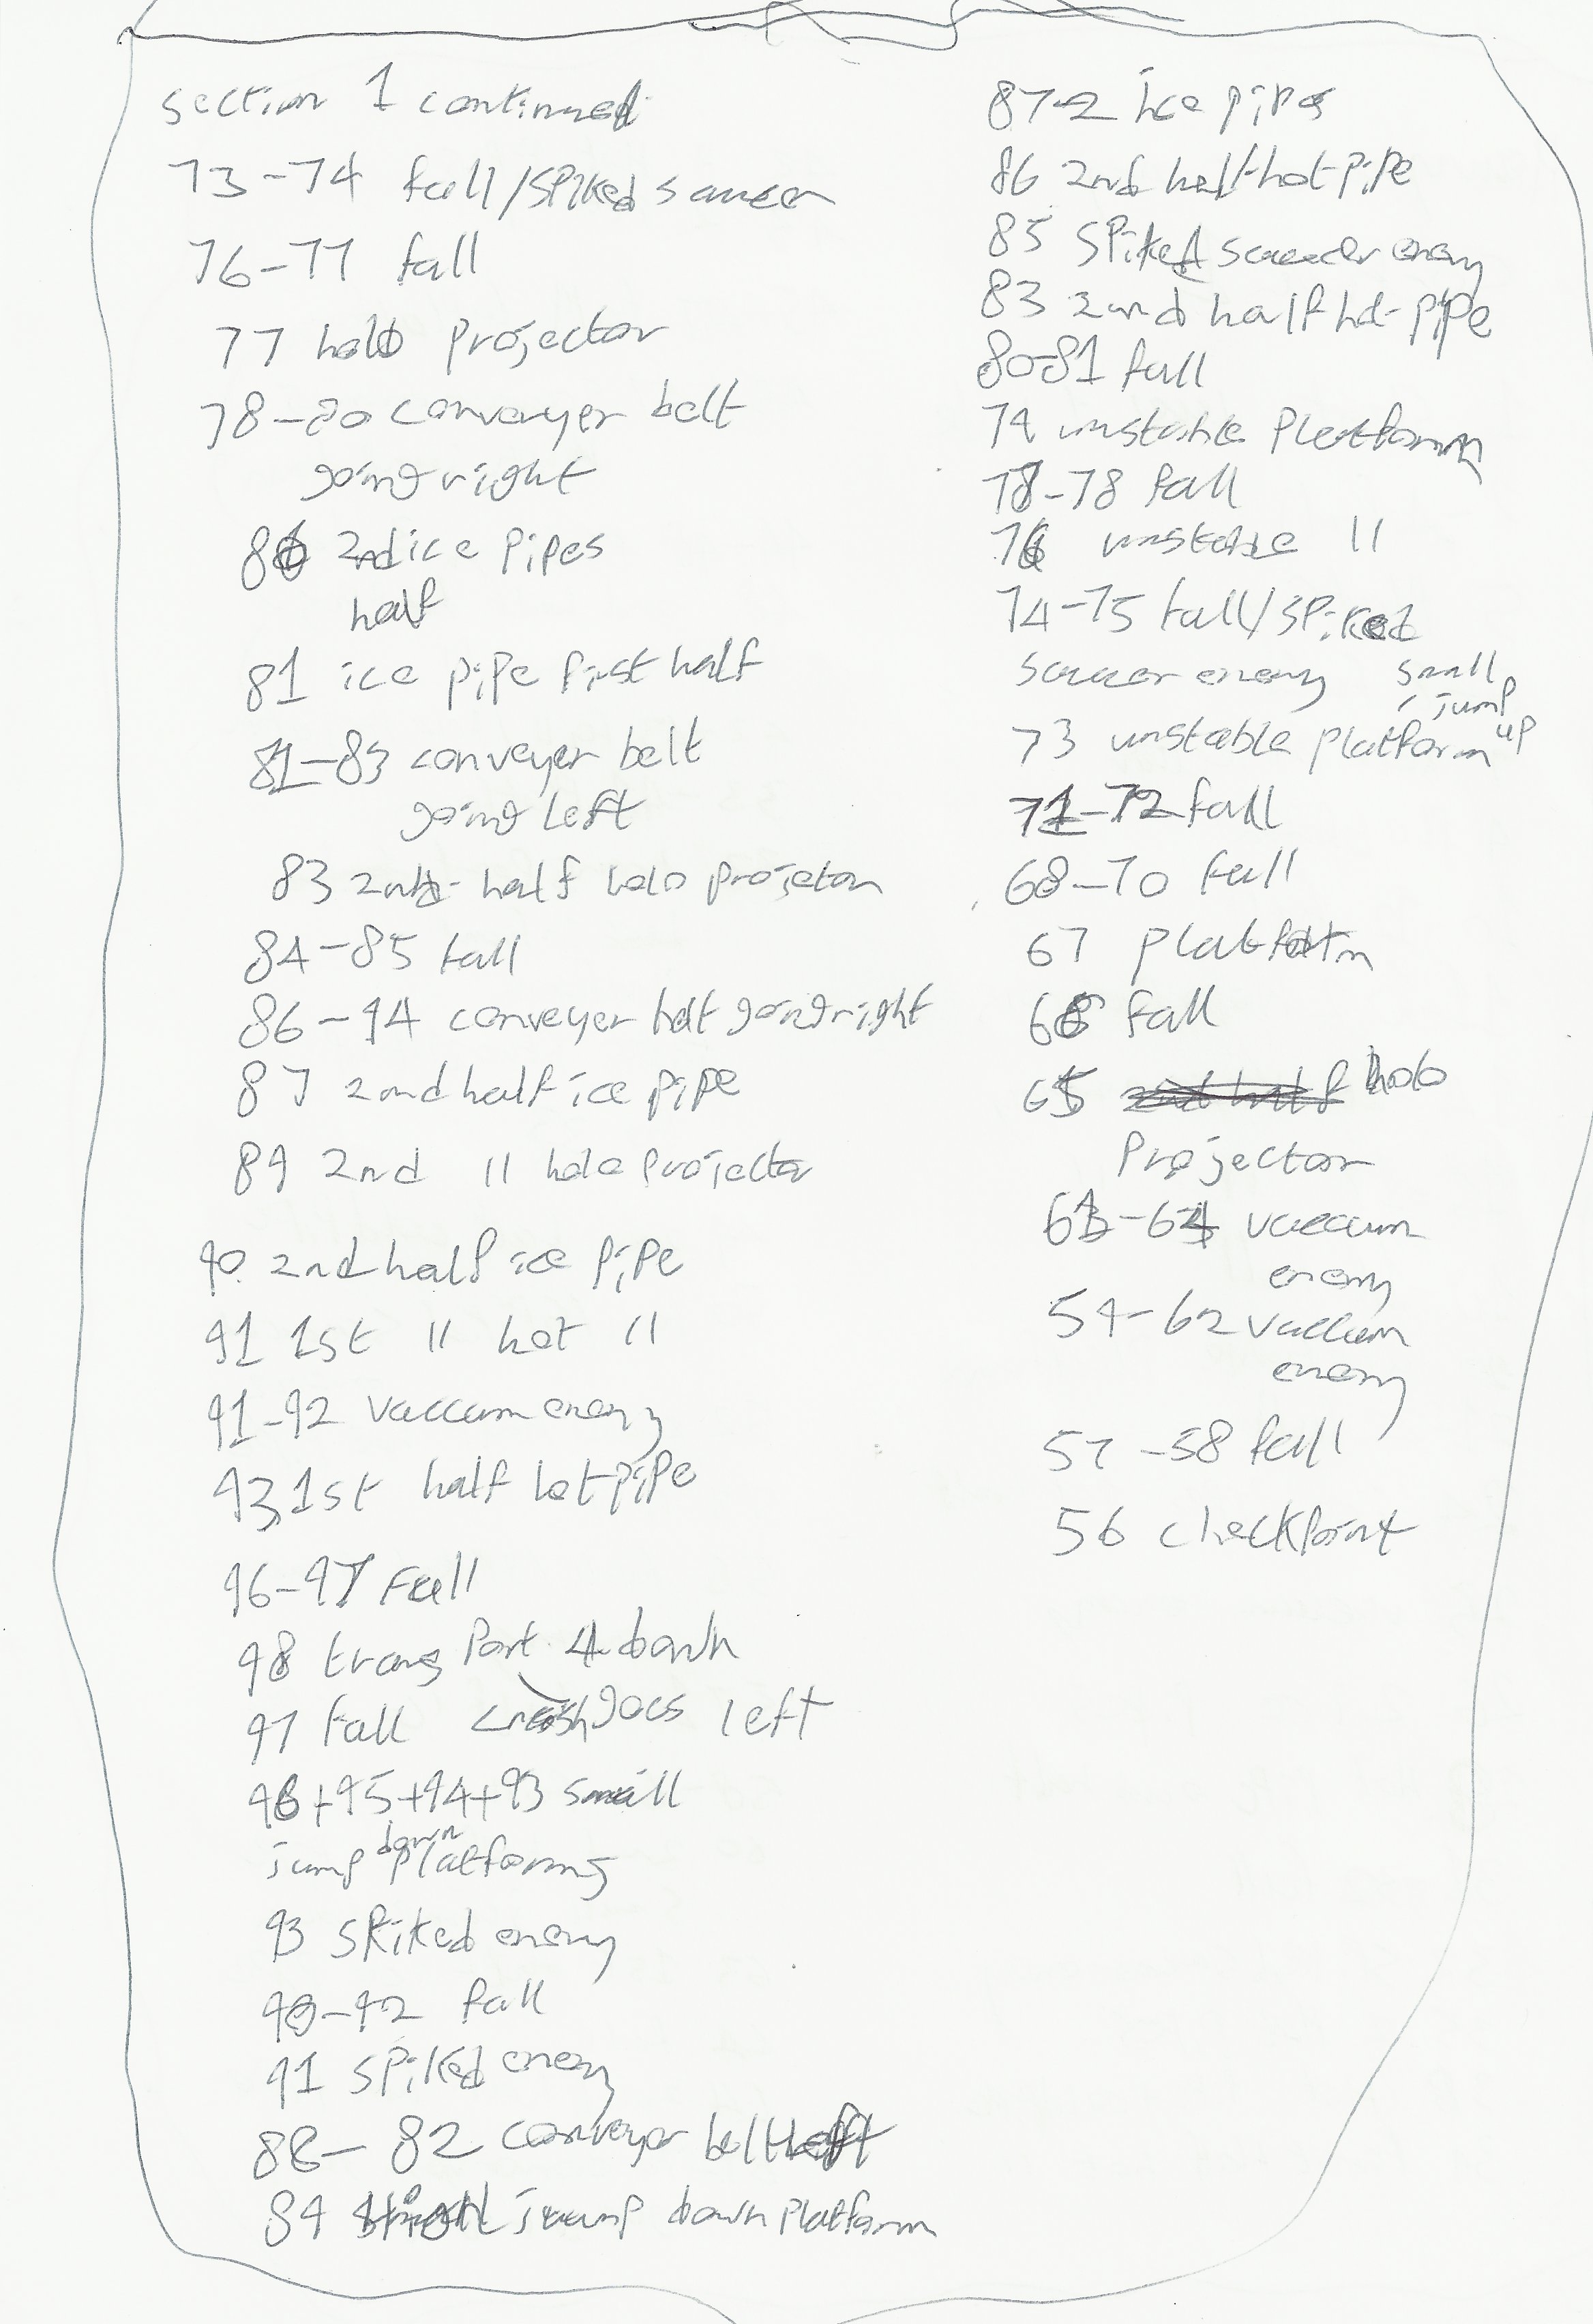 section 1 continued
73-74 fall/spiked saucer
76-77 fall
77 holo projector
78-80 conveyer belt
going right
86 2nd ice pipes
half
81 ice pipe first half
81-83 conveyer belt
going left
83 2nd half holo projector
84-85 fall
86-94 conveyer belt going right
87 2nd half ice pipe
89 2nd 11 holo projector
90 2nd half ice pipe
91 1st 11 hot 11
91-92 vaccum enemy
93 1st half hot pipe
96-97 Fall
98 trans port 4 down
97 fall crash goes left
96+95+94+93 small
jump down platforms
93 spiked enemy
93-92 fall
91 spiked enemy
88-82 conveyer belt left
89 high jump down platform
87-2 ice pipes
86 2nd half hot pipe
85 spiked saucer enemy
83 2nd half hot pipe
80-81 fall
79 unstable platform
78-78 fall
76 unstable 11
74-75 fall/spiked
saucer enemy small
jump
73 unstable platform up
71-72 fall
68-70 fall
67 platform
66 fall
65 holo
Projector
63-64 vaccum
enemy
59-62 vaccum
enemy
57-58 fall
56 checkpoint